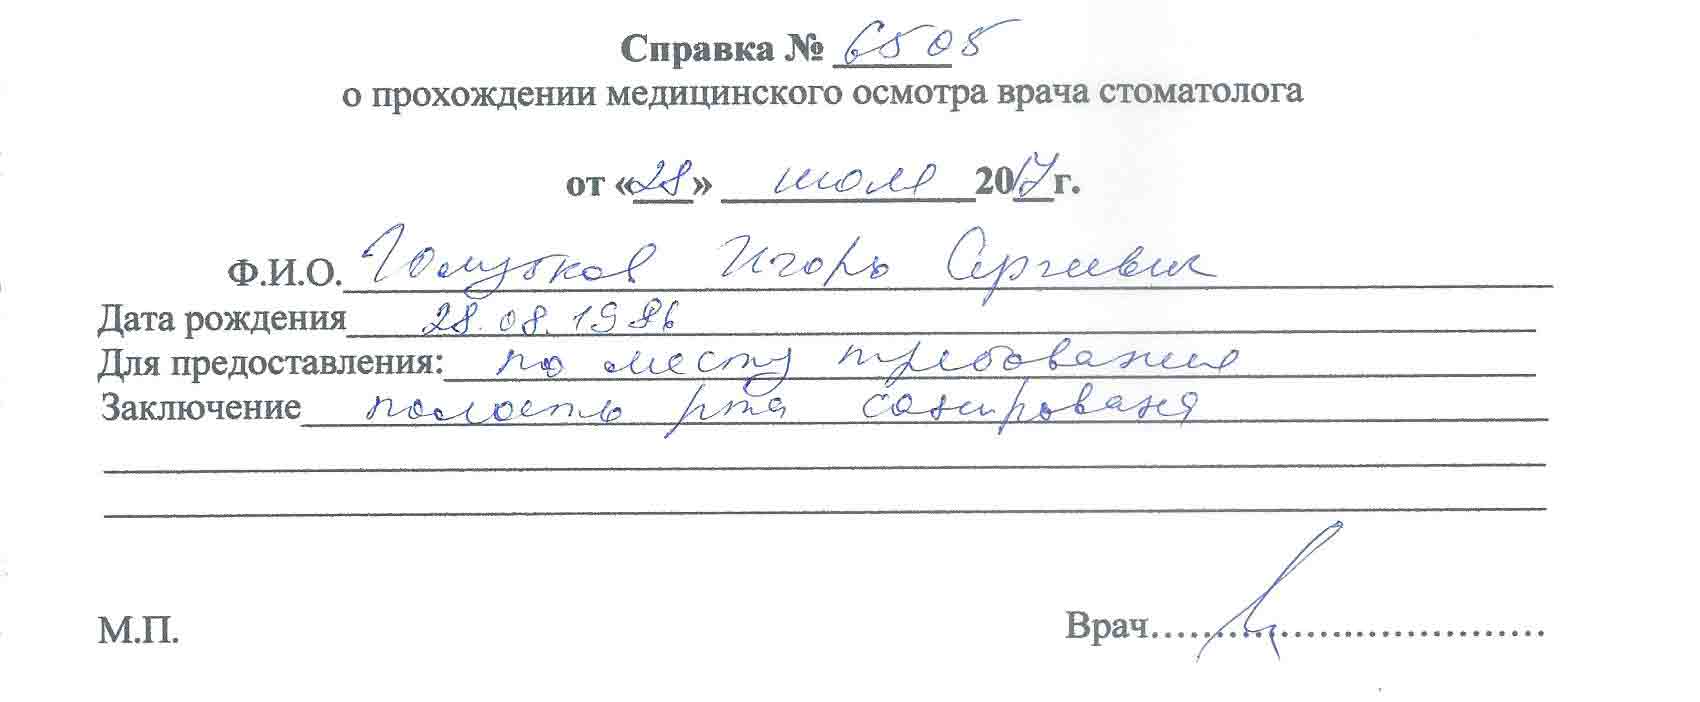 Справка № 6505
о прохождении медицинского осмотра врача стоматолога
от «28» июля 2017г.
Ф.И.О. Голубков Игорь Сергеевич
Дата рождения 28.08.1986
Для предоставления: по месту требования
Заключение полость рта санирована
М.П. Врач...................................